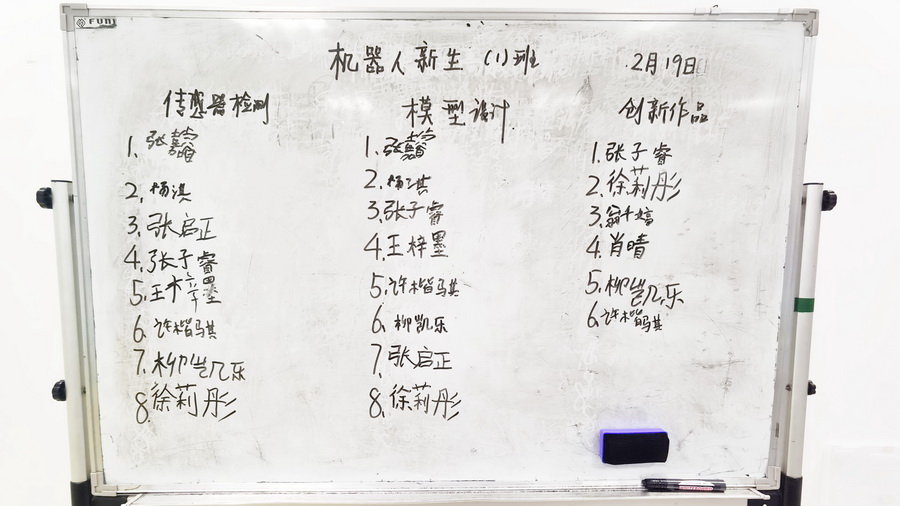 FUNI
机器人新生(1)班 2月19日
传感器检测
1.张馨
2.杨淇
3.张启正
4.张子睿
5.王梓墨
6.许楷骐
7.柳凯乐
8.徐莉彤
模型设计
1.张馨
2.杨淇
3.张子睿
4.王梓墨
5.许楷骐
6.柳凯乐
7.张启正
8.徐莉彤
创新作品
1.张子睿
2.徐莉彤
3.翁千婷
4.肖晴
5.柳凯乐
6.许楷骐